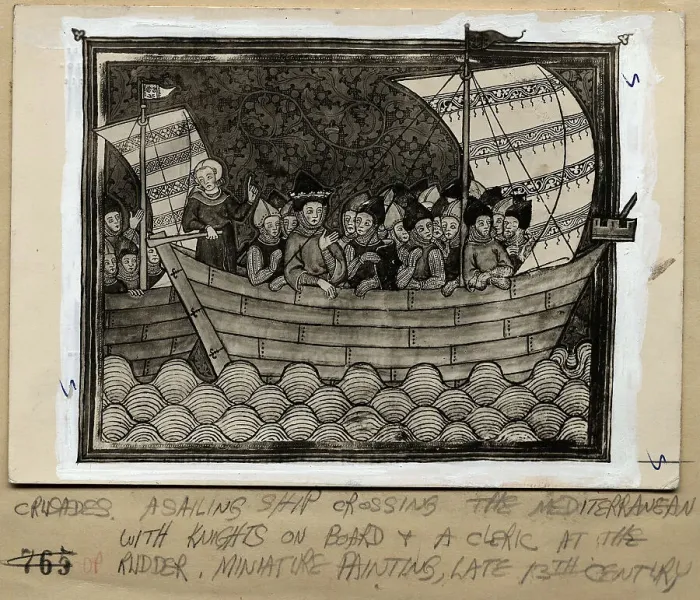 CRUSADES. A SAILING SHIP CROSSING THE MEDITERRANEAN
WITH KNIGHTS ON BOARD + A CLERIC AT THE
765 DP RUDDER. MINIATURE PAINTING, LATE 13TH CENTURY